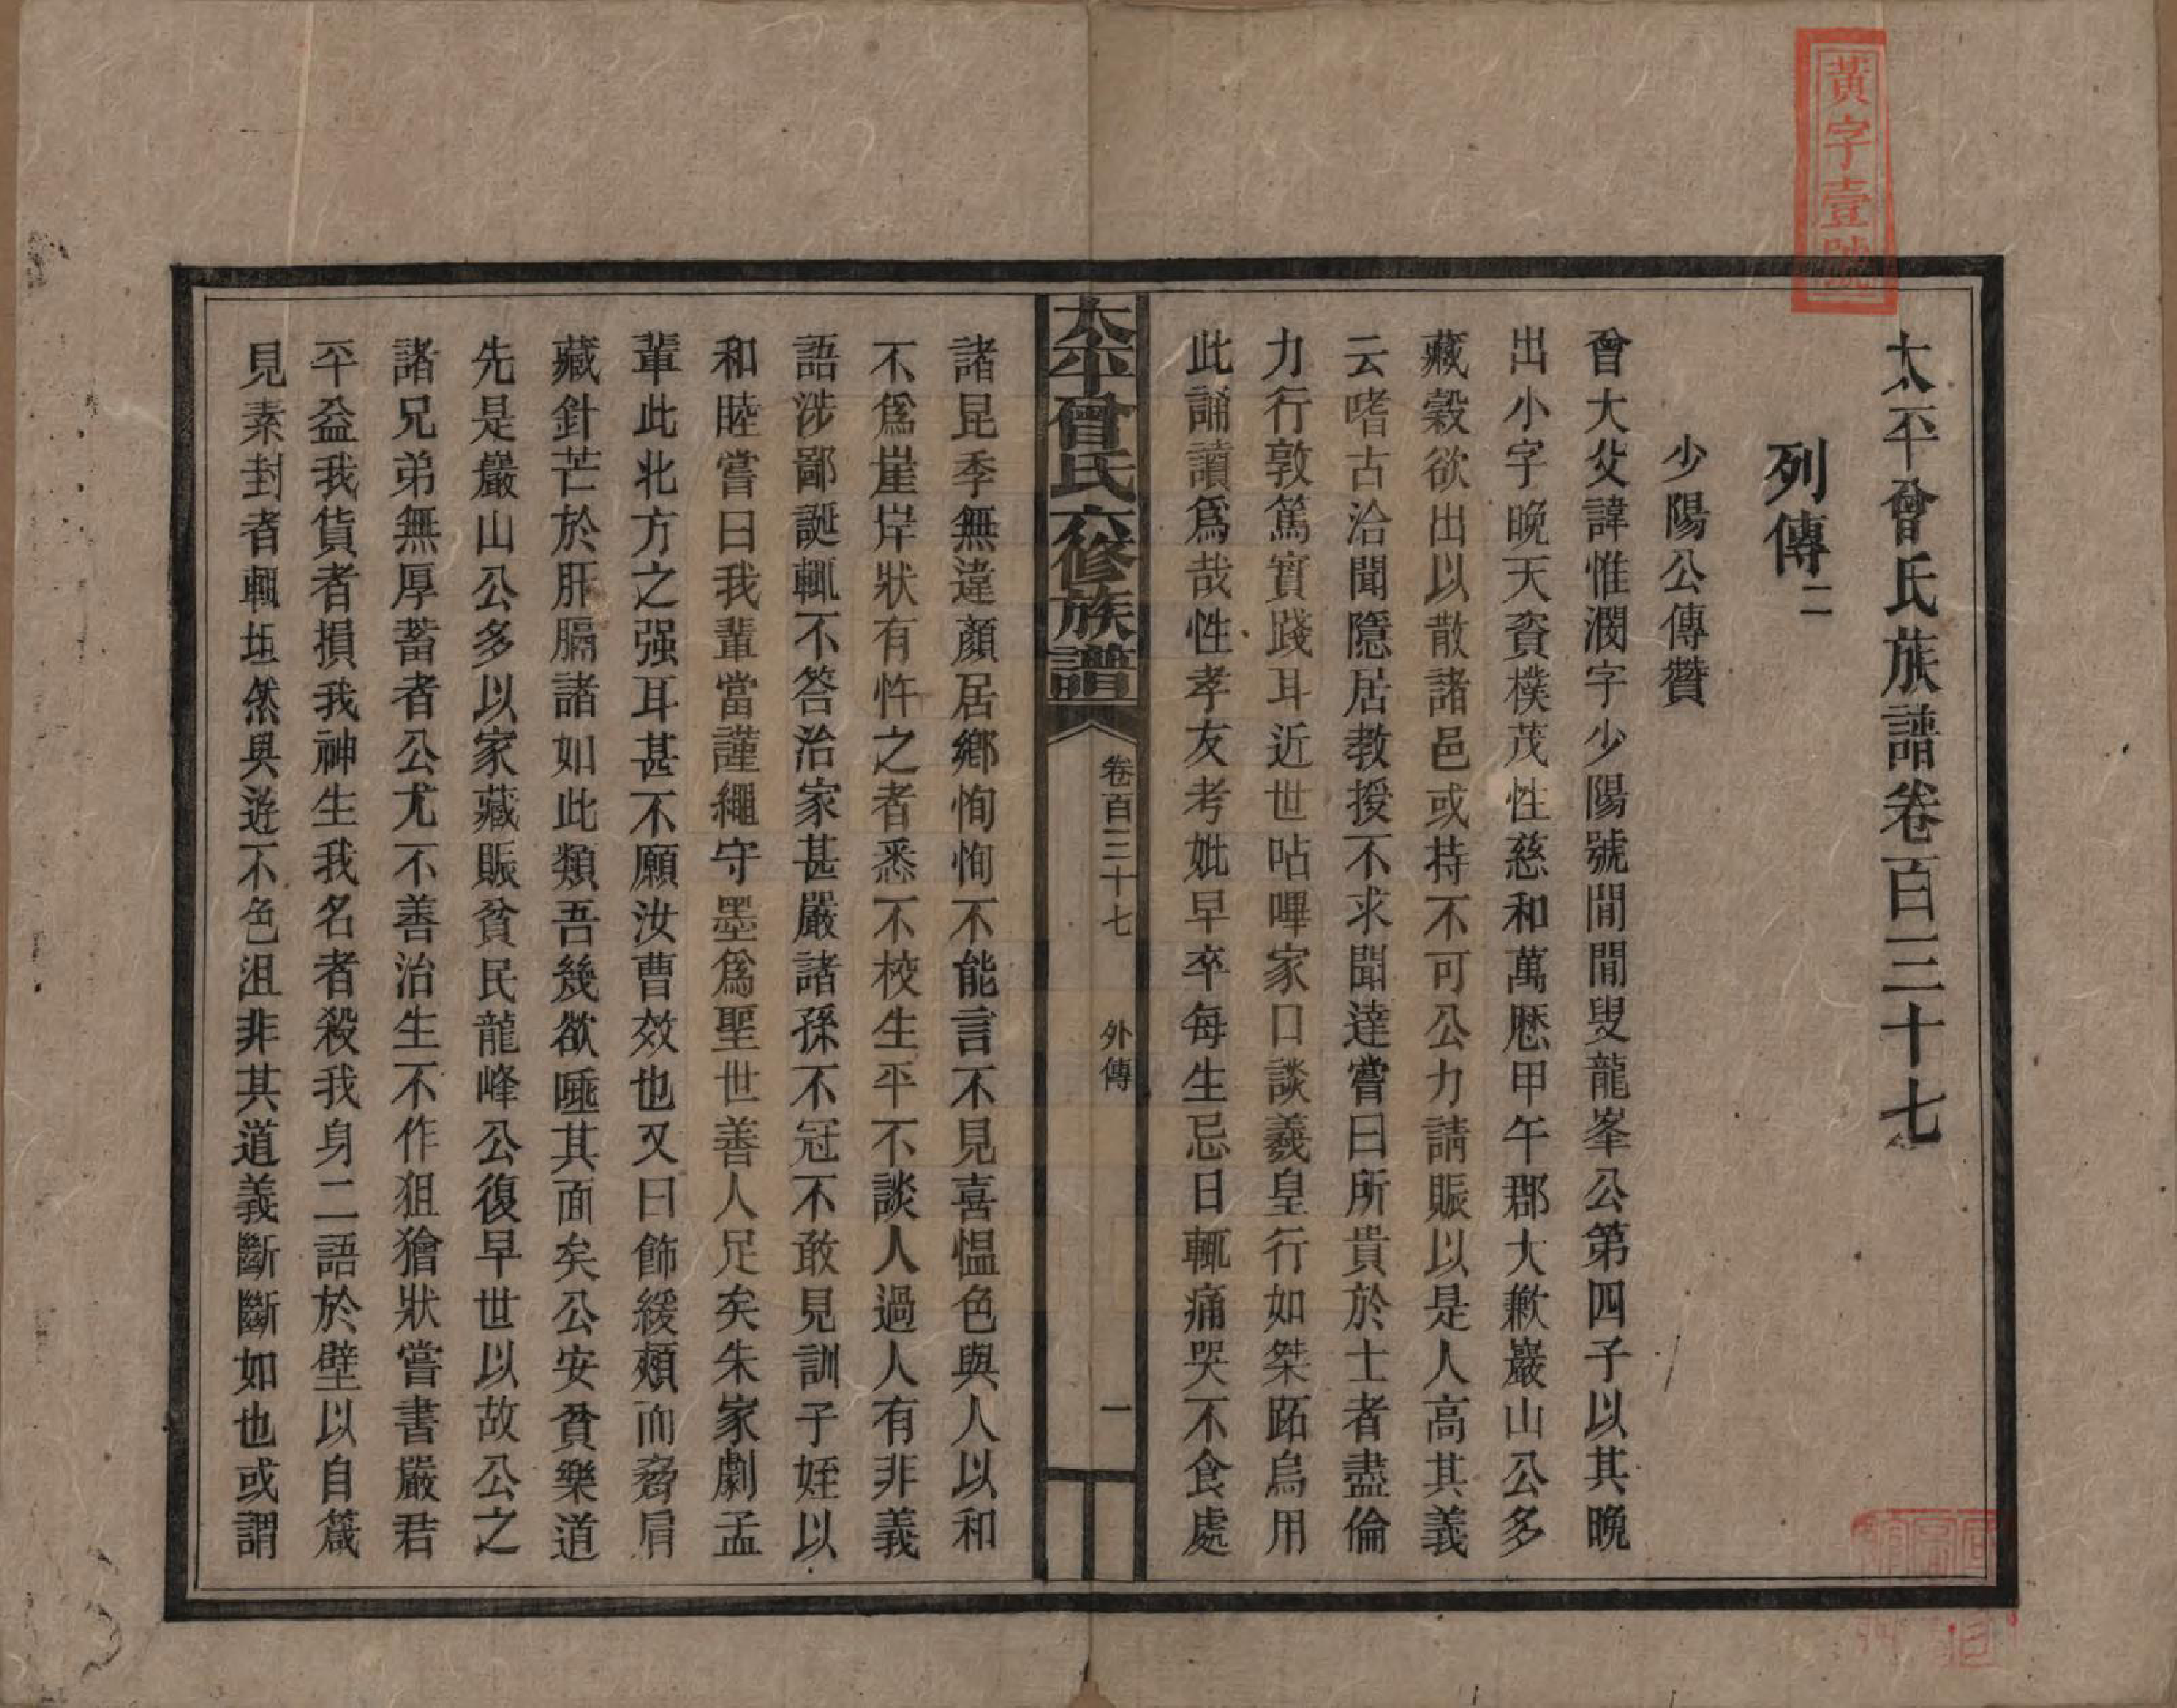 黃字壹號
太平曾氏族譜卷百三十七
列傳二
少陽公傳贊
曾大父諱惟濶字少陽號閒閒叟龍峯公第四子以其晩
出小字晩天資樸茂性慈和萬厯甲午郡大歉巖山公多
藏穀欲出以散諸邑或持不可公力請賑以是人高其義
云嗜古洽聞隱居教授不求聞達嘗曰所貴於士者盡倫
力行敦篤實踐耳近世呫嗶家口談羲皇行如桀跖烏用
此誦讀爲哉性孝友考妣早卒每生忌日輒痛哭不食處
太平曾氏六修族譜 卷百三十七 外傳 一
諸昆季無違顏居鄉恂恂不能言不見喜愠色與人以和
不爲崖岸狀有忤之者悉不校生平不談人過人有非義
語涉鄙誕輒不答治家甚嚴諸孫不冠不敢見訓子姪以
和睦嘗曰我輩當謹繩守墨爲聖世善人足矣朱家劇孟
輩此北方之强耳甚不願汝曹效也又曰飾緩頰而脅肩
藏針芒於肝膈諸如此類吾幾欲唾其面矣公安貧樂道
先是巖山公多以家藏賑貧民龍峰公復早世以故公之
諸兄弟無厚蓄者公尤不善治生不作狙獪狀嘗書嚴君
平益我貨者損我神生我名者殺我身二語於壁以自箴
見素封者輒坦然與遊不色沮非其道義斷斷如也或謂